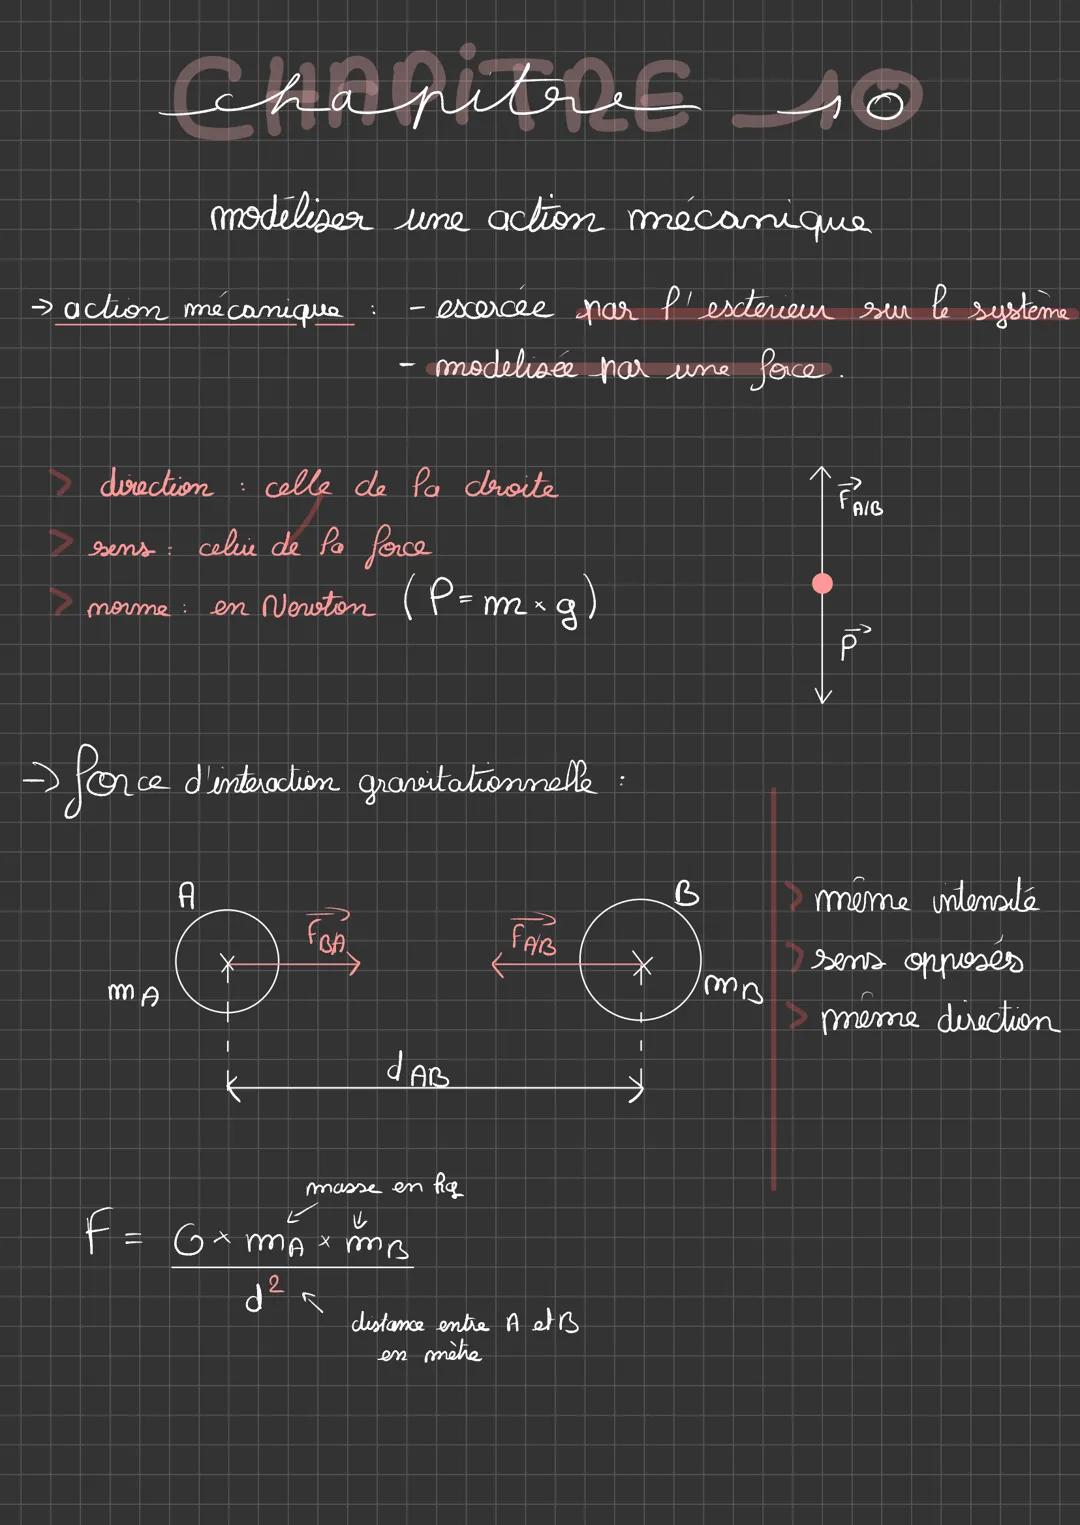 CHAPITRE 10
chapitre 10
modéliser une action mécanique
→ action mécanique : - exercée par l'exterieur sur le système
- modelisée par une force.
> direction : celle de la droite
> sens : celui de la force
> norme : en Newton (P = m × g)
F A/B
P
→ force d'interaction gravitationnelle :
A
B
F B/A
F A/B
m A
m B
d AB
> même intensité
> sens opposés
> même direction
masse en kg
F = G × mA × mB
d²
distance entre A et B
en mètre